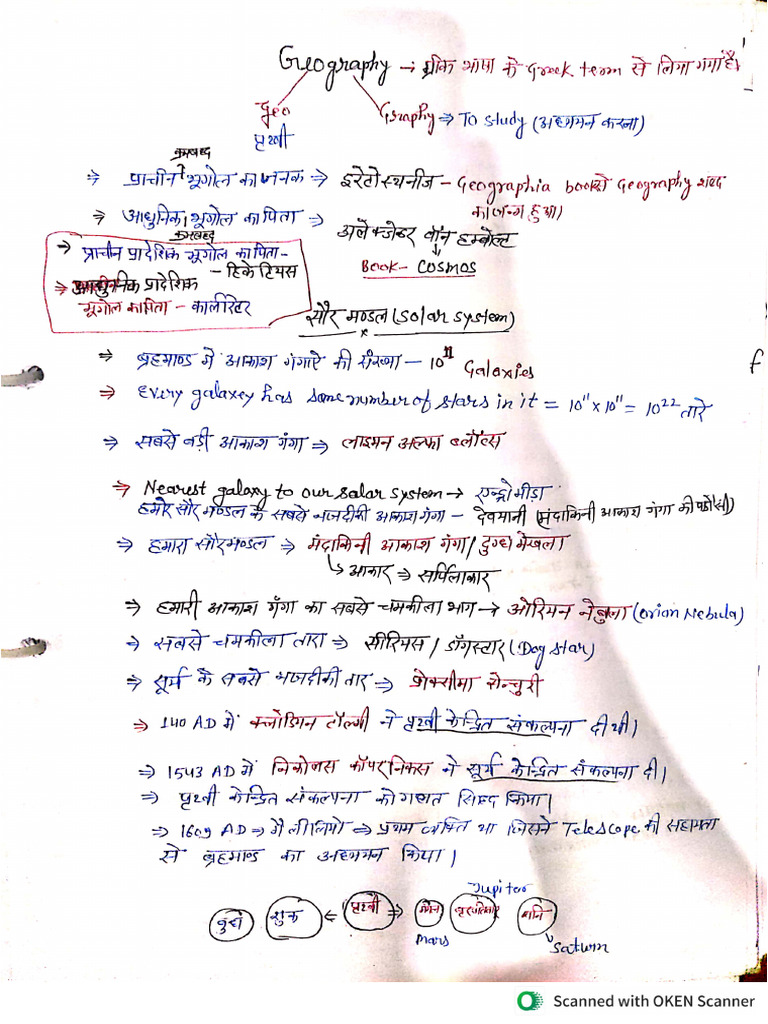 Geography → ग्रीक भाषा के Greek term से लिया गया है।
Geo Graphy ⇒ To study (अध्ययन करना)
पृथ्वी
क्रमबद्ध
⇒ प्राचीन भूगोल का जनक ⇒ इरेटोस्थनीज - Geographia book से Geography शब्द
का जन्म हुआ।
⇒ आधुनिक भूगोल का पिता ⇒ अलेक्जेंडर वॉन हम्बोल्ट
क्रमबद्ध
Book - COSMOS
⇒ प्राचीन प्रादेशिक भूगोल का पिता -
- हिकेटियस
⇒ आधुनिक प्रादेशिक
भूगोल का पिता - कार्ल रिटर
सौर मण्डल (Solar System)
x
⇒ ब्रहमाण्ड में आकाश गंगाऐ की संख्या - 10¹¹ Galaxies
f
⇒ Every galaxey has same number of stars in it = 10¹¹ x 10¹¹ = 10²² तारे
⇒ सबसे बड़ी आकाश गंगा ⇒ लाइमन अल्फा ब्लॉल्स
⇒ Nearest galaxy to our solar system → एन्ड्रोमीडा
हमारे सौर मण्डल के सबसे नजदीकी आकाश गंगा - देवयानी (मंदाकिनी आकाश गंगा की पडौसी)
⇒ हमारा सौरमण्डल ⇒ मंदाकिनी आकाश गंगा / दुग्ध मेखला
आकार ⇒ सर्पिलाकार
⇒ हमारी आकाश गंगा का सबसे चमकीला भाग → ओरियन नेबुला (Orian Nebula)
⇒ सबसे चमकीला तारा ⇒ सीरियस / डॉगस्टार (Dog star)
⇒ सूर्य के सबसे नजदीकी तार ⇒ प्रोक्सीमा सेन्चुरी
⇒ 140 AD में क्लोडियन टॉल्मी ने पृथ्वी केन्द्रित संकल्पना दी थी।
⇒ 1543 AD में निकोलस कॉपरनिकस ने सूर्य केन्द्रित संकल्पना दी।
⇒ पृथ्वी केन्द्रित संकल्पना को गलत सिद्ध किया।
⇒ 1609 AD ⇒ गैलीलियो ⇒ प्रथम व्यक्ति था जिसने Telescope की सहायता
से ब्रहमाण्ड का अध्ययन किया।
Jupiter
बुध शुक्र ⇐ पृथ्वी ⇒ मंगल बृहस्पति शनि
Mars Saturn
Scanned with OKEN Scanner